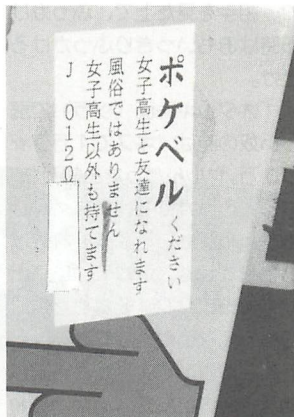 ポケベルください
女子高生と友達になれます
風俗ではありません
女子高生以外も持てます
J 0120